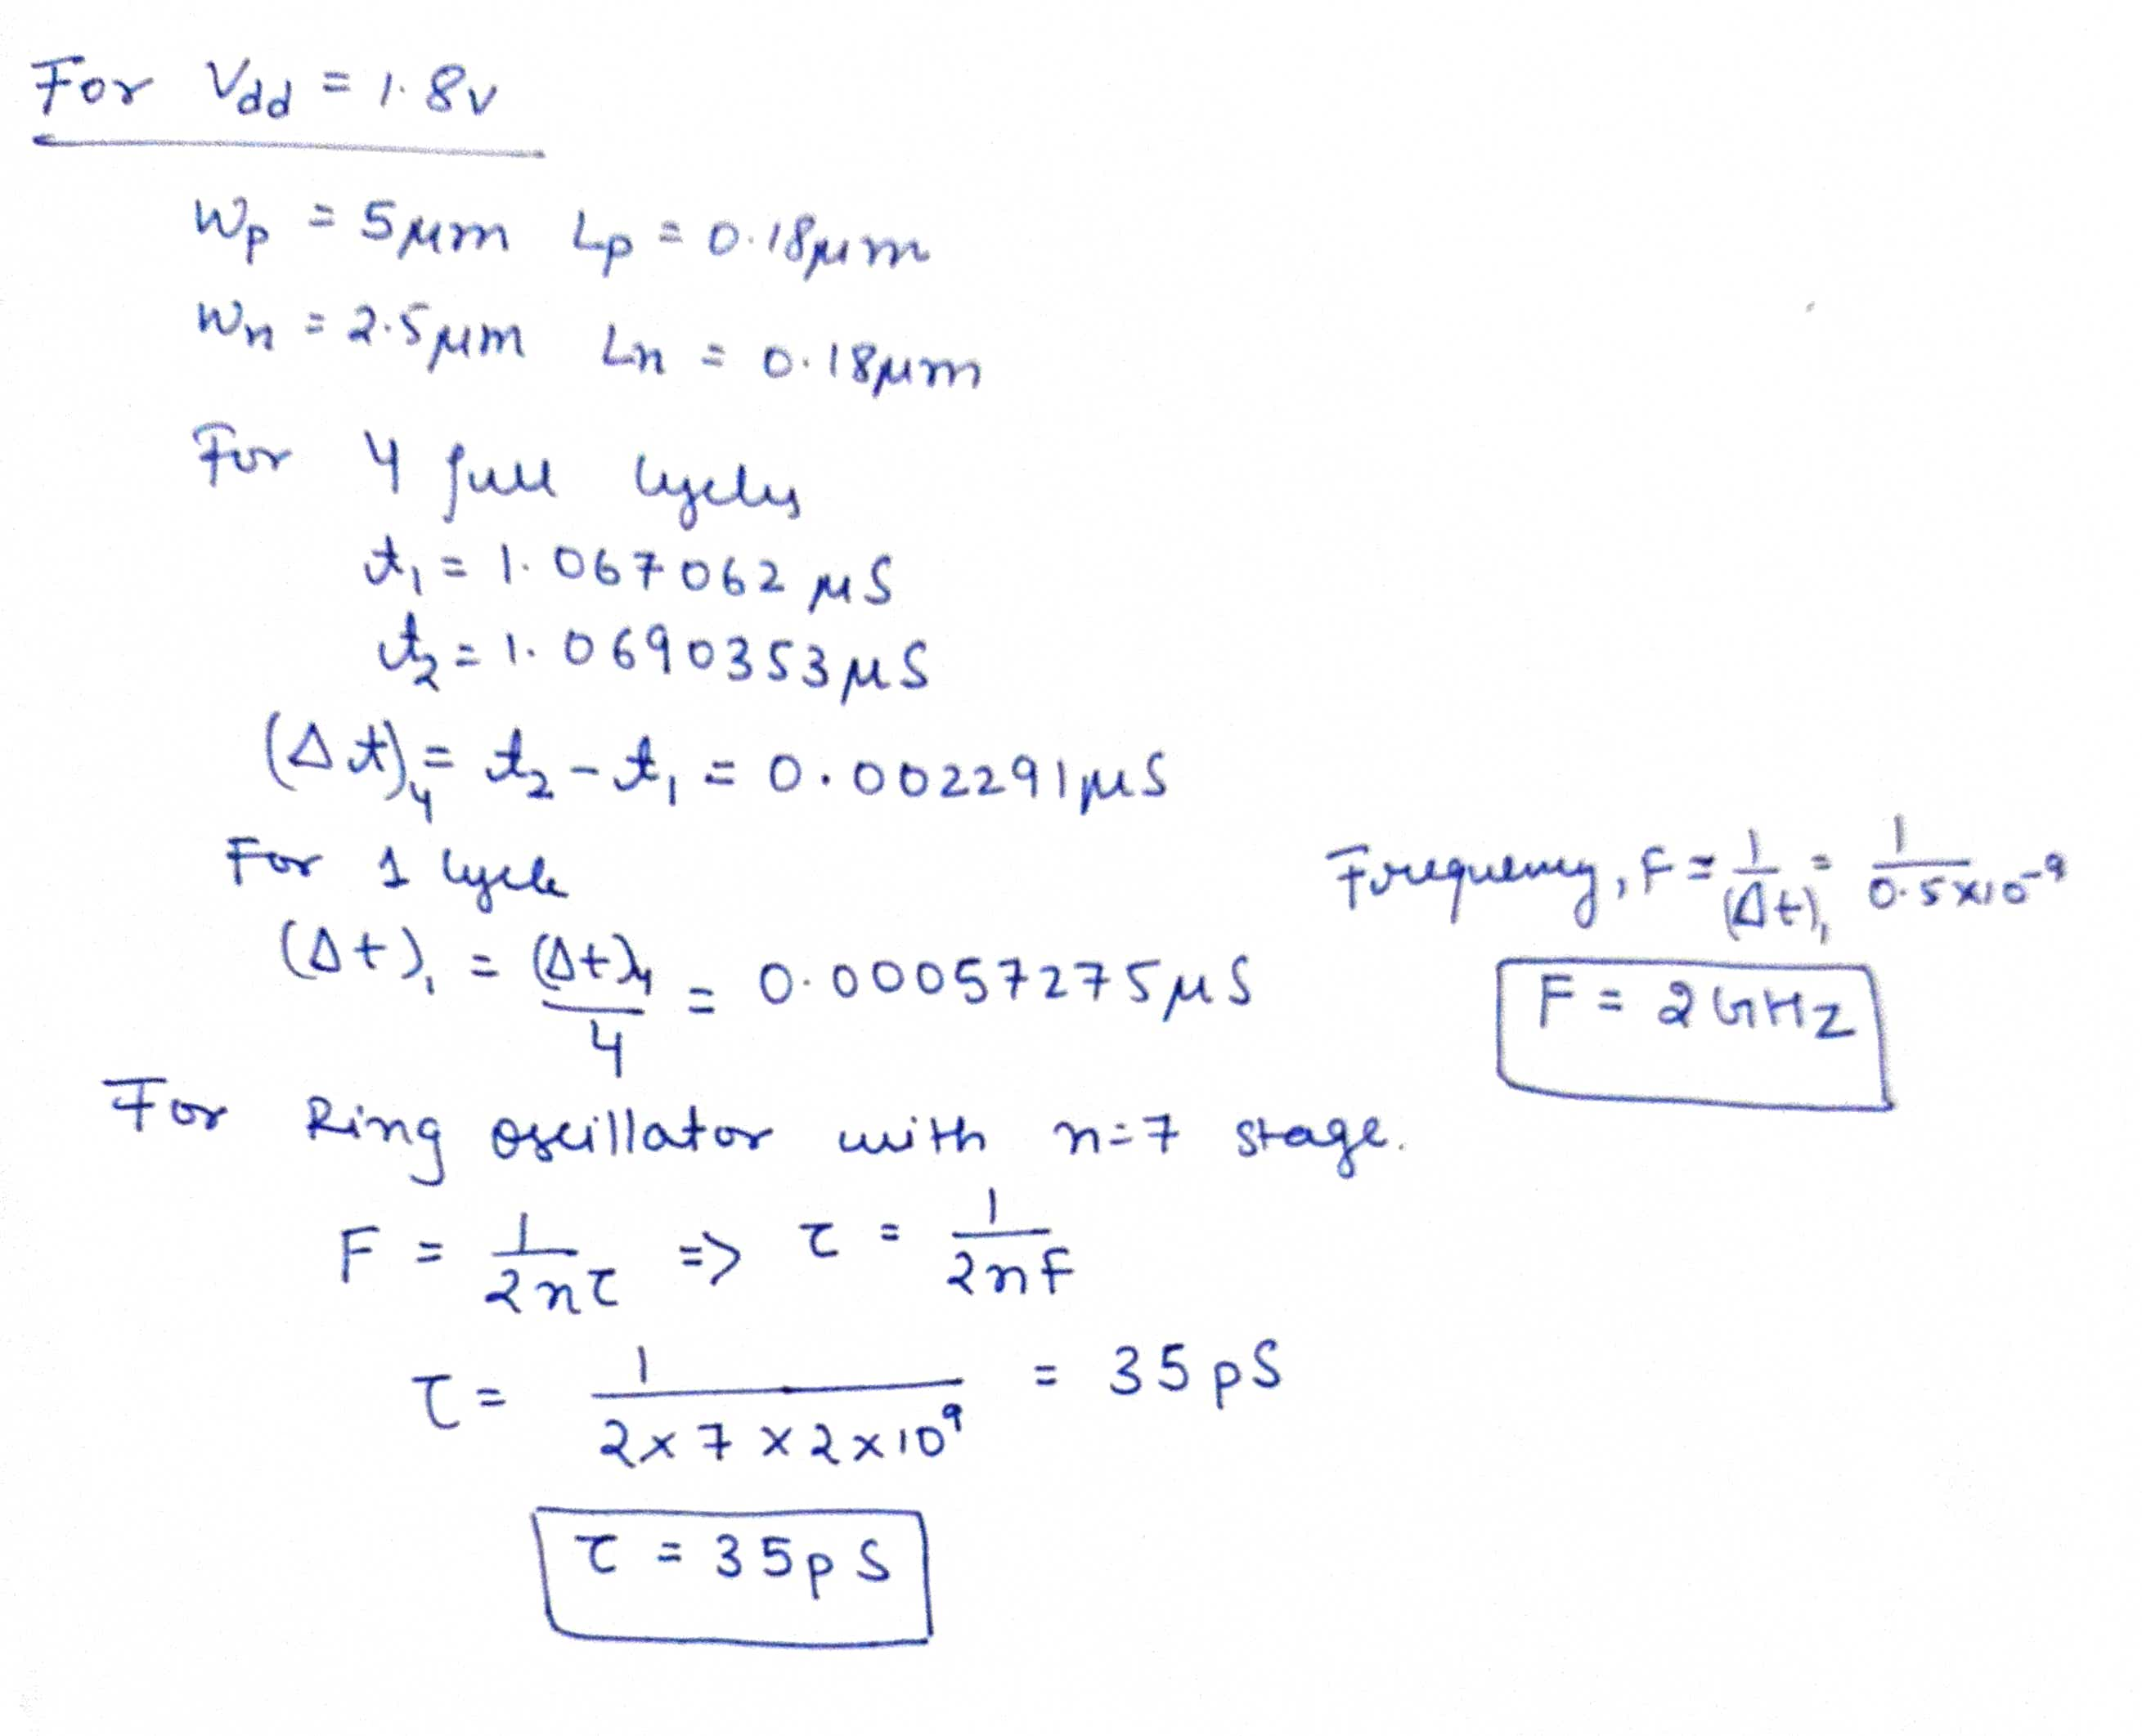 For Vdd = 1.8v
Wp = 5μm Lp = 0.18μm
Wn = 2.5μm Ln = 0.18μm
For 4 full cycles
t₁ = 1.067062 μS
t₂ = 1.0690353 μS
(Δt)₄ = t₂ - t₁ = 0.002291 μS
For 1 cycle
(Δt)₁ = (Δt)₄/4 = 0.00057275 μS
Frequency, F = 1/(Δt)₁ = 1/0.5×10⁻⁹
F = 2 GHz
For Ring oscillator with n=7 stage.
F = 1/2nτ => τ = 1/2nF
τ = 1/2×7×2×10⁹ = 35 pS
τ = 35pS